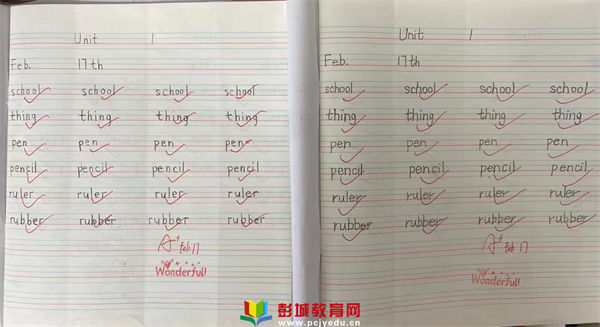 Unit 1
Feb. 17th
school school school school
thing thing thing thing
pen pen pen pen
pencil pencil pencil pencil
ruler ruler ruler ruler
rubber rubber rubber rubber
A+ Feb.17
Wonderful!
Unit 1
Feb. 17th
school school school school
thing thing thing thing
pen pen pen pen
pencil pencil pencil pencil
ruler ruler ruler ruler
rubber rubber rubber rubber
A+ Feb.17
Wonderful!
彭城教育网
www.pcjyedu.cn